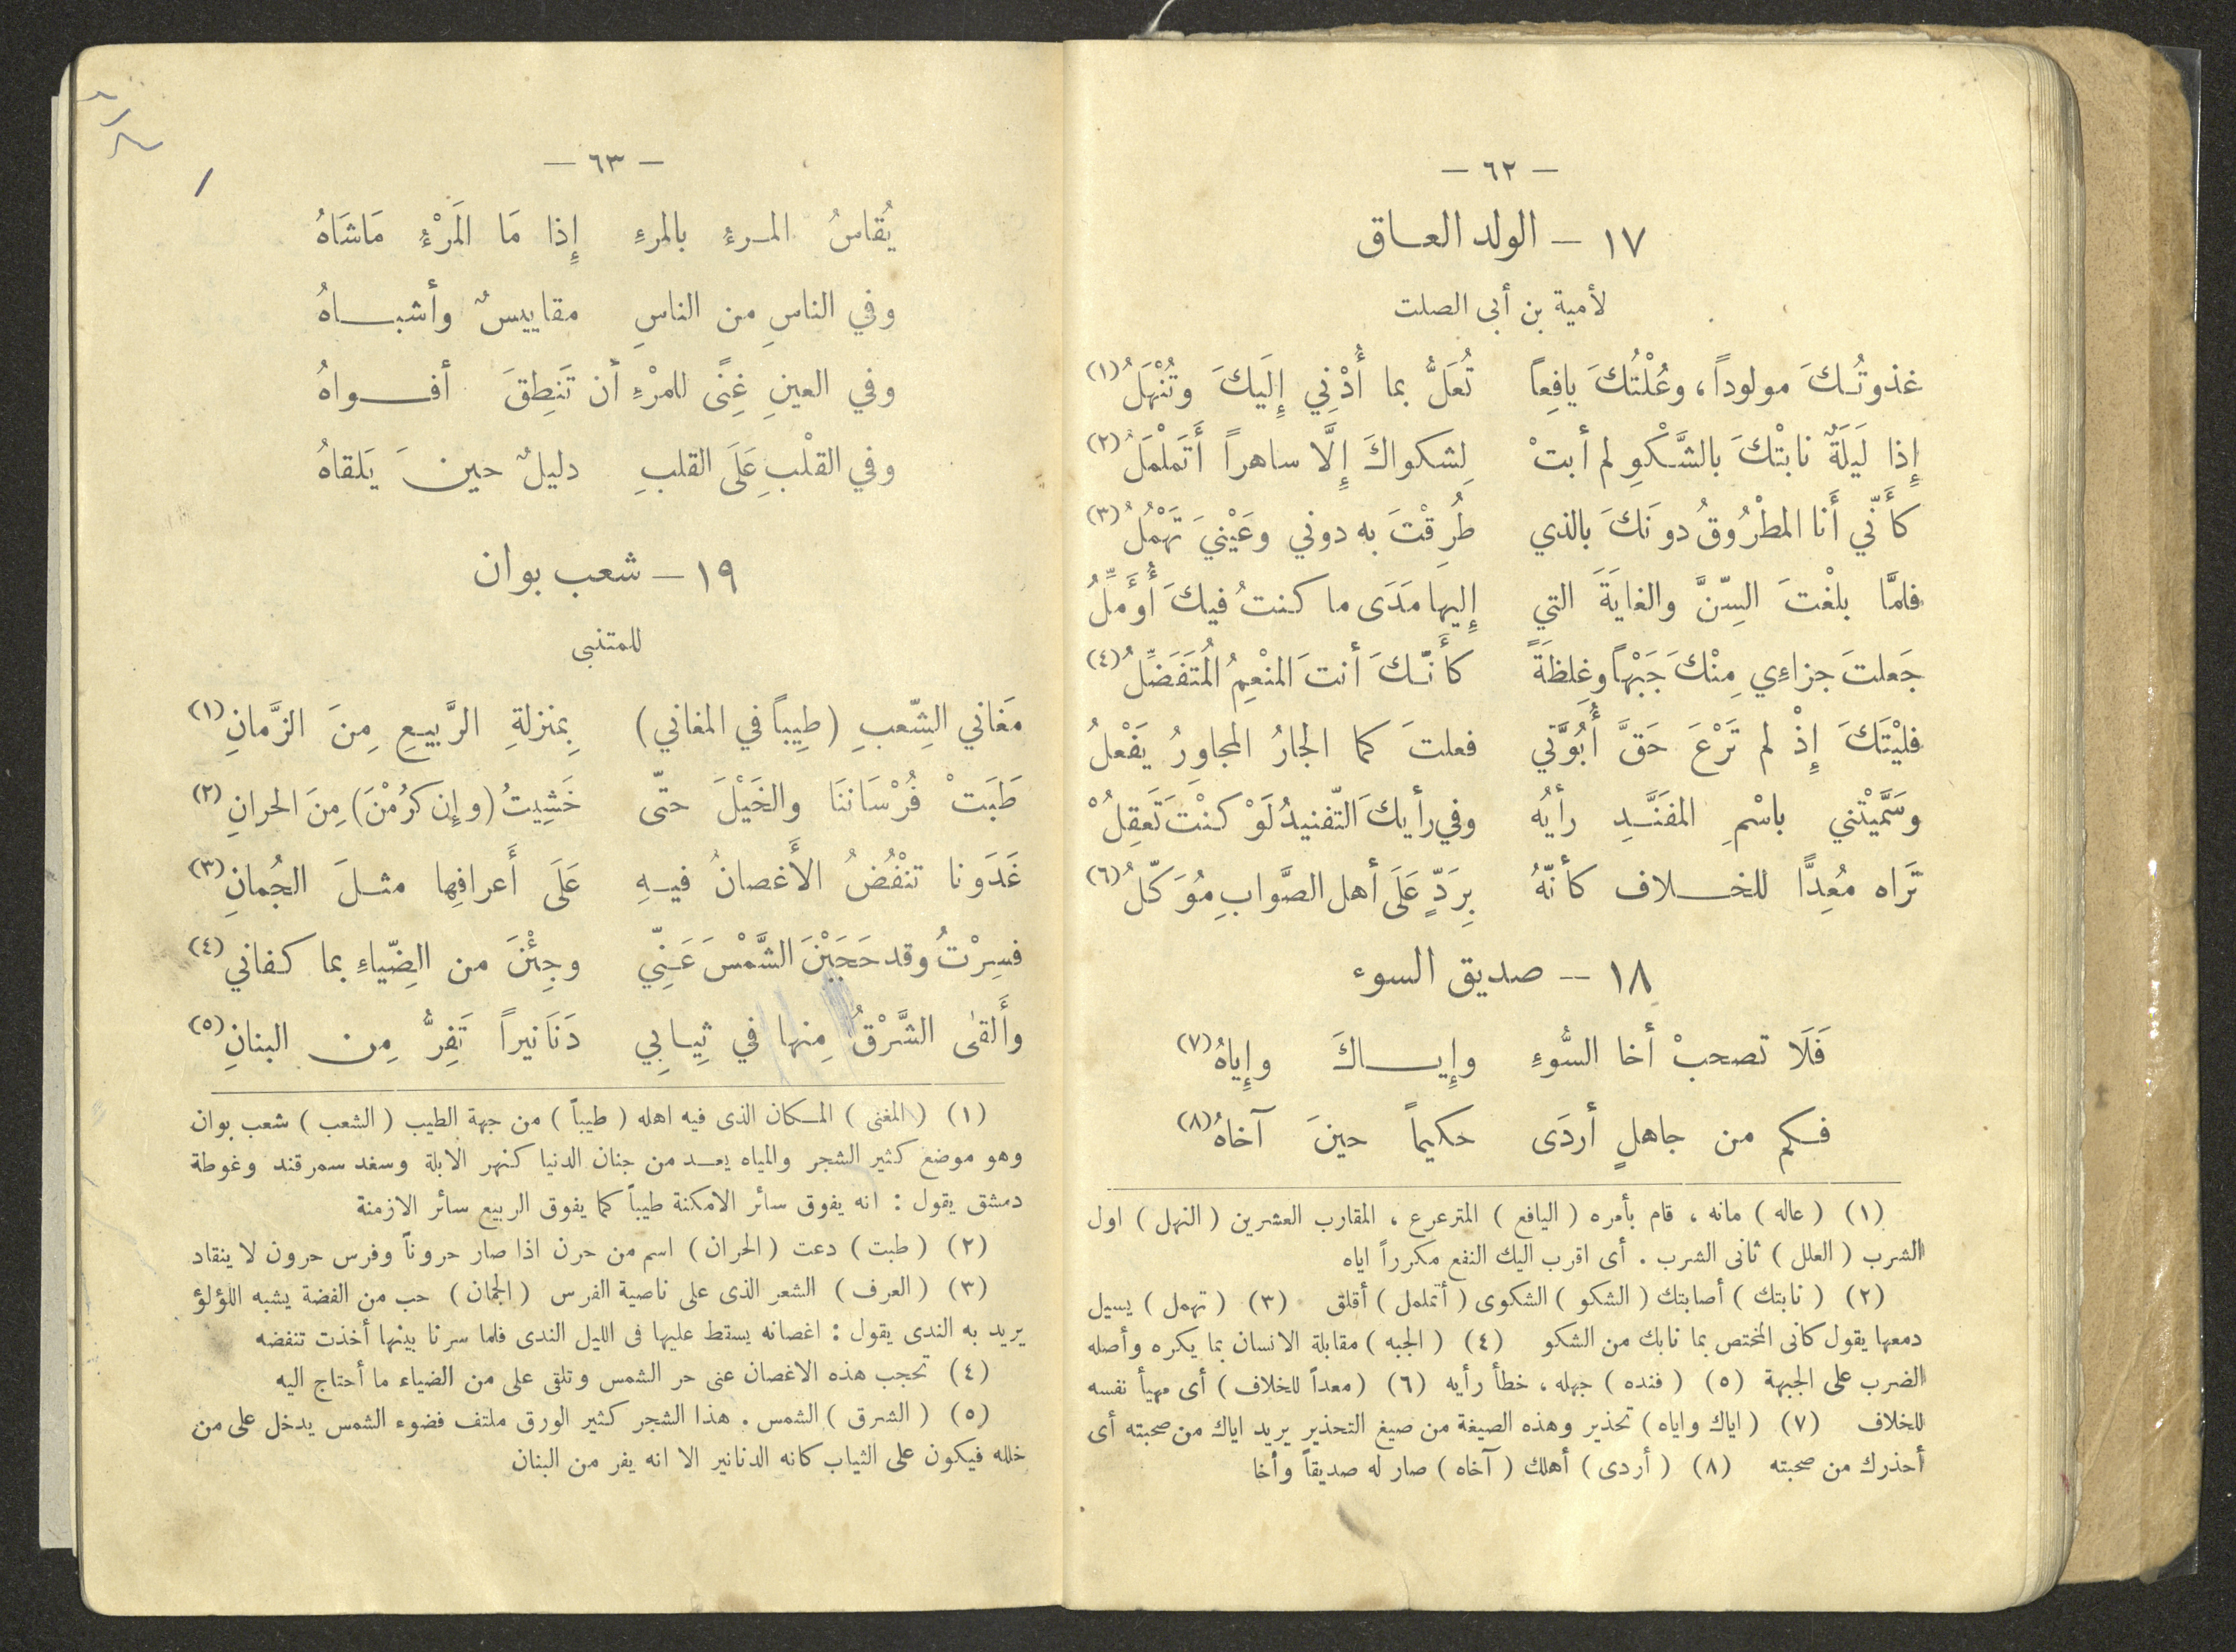 — ٦٢ —
١٧ — الولد العاق
لأمية بن أبى الصلت
غذوتُكَ مولوداً، وعُلْتُكَ يافِعاً تُعَلُّ بما أُدْنِي إِلَيكَ وتُنْهَلُ (١)
إِذا لَيلَةٌ نابتْكَ بالشَّكْوِ لم أبتْ لِشكواكَ إِلَّا ساهراً أَتَململُ (٢)
كأَنّي أَنا المطْرُوقُ دونَكَ بالذي طُرِقْتَ به دوني وعَيْنيَ تَهْمُلُ (٣)
فلمَّا بلغْتَ السِّنَّ والغايَةَ التي إِليها مَدَى ما كنتُ فيكَ أُؤَمِّلُ
جَعلتَ جزاءِي مِنْكَ جَبْهاً وغِلظَةً كأَنَّكَ أنتَ المنْعِمُ المُتَفَضِّلُ (٤)
فليْتَكَ إِذْ لم تَرْعَ حَقَّ أُبُوَّتي فعلتَ كما الجارُ المجاوِرُ يَفْعلُ
وسَمَّيْتْني باسْمِ المفَنَّدِ رأيُه وفي رأيكَ التّفنيدُ لَوْ كنْتَ تَعقِلُْ
تَراه مُعِدًّا للخلاف كأنّهُ بِرَدٍّ عَلَى أهل الصَّوابِ مُوَكّلُ (٦)
١٨ — صديق السوء
فَلَا تصحبْ أخا السُّوءِ وإِياكَ وإِياهُ (٧)
فكم من جاهلٍ أردَى حكيماً حينَ آخاهُ (٨)
(١) ( عاله ) مانه ، قام بأمره ( اليافع ) المترعرع ، المقارب العشرين ( النهل ) اول
الشرب ( العلل ) ثانى الشرب . أى اقرب اليك النفع مكرراً اياه
(٢) ( نابتك ) أصابتك ( الشكو ) الشكوى ( أتململ ) أقلق (٣) ( تهمل ) يسيل
دمعها يقول كانى المختص بما نابك من الشكو (٤) ( الجبه ) مقابلة الانسان بما يكره وأصله
الضرب على الجبهة (٥) ( فنده ) جهله ، خطأ رأيه (٦) ( معداً للخلاف ) أى مهيأ نفسه
للخلاف (٧) ( اياك واياه ) تحذير وهذه الصيغة من صيغ التحذير يريد اياك من صحبته أى
أحذرك من صحبته (٨) ( أردى ) أهلك ( آخاه ) صار له صديقاً وأخا
— ٦٣ —
يُقاسُ المرءُ بالمرءِ إِذا مَا المَرْءُ مَاشَاهُ
وفي الناسِ من الناسِ مقاييسٌ وأشباهُ
وفي العينِ غِنًى للمرْءِ أن تَنطِقَ أفواهُ
وفي القلْبِ عَلَى القلبِ دليلٌ حينَ يَلقاهُ
١٩ — شعب بوان
للمتنبى
مَغاني الشِّعبِ (طِيباً في المغاني) بِمنزلةِ الرَّبيعِ مِنَ الزَّمانِ (١)
طَبَتْ فُرْسَانَنَا والخَيْلَ حتّى خَشِيتُ (وإِن كرُمْنَ) مِنَ الحرانِ (٢)
غَدَونا تنْفُضُ الأَغصانُ فيهِ عَلَى أَعرافِها مثلَ الجُمانِ (٣)
فسِرْتُ وقد حَجَبْنَ الشَّمْسَ عَنِّي وجِئْنَ من الضِّياءِ بما كفاني (٤)
وأَلقى الشَّرْقُ مِنها في ثِيابِي دَنَانيراً تَفِرُّ مِن البنانِ (٥)
(١) ( المغنى ) المكان الذى فيه اهله ( طيباً ) من جهة الطيب ( الشعب ) شعب بوان
وهو موضع كثير الشجر والمياه يعد من جنان الدنيا كنهر الابلة وسغد سمرقند وغوطة
دمشق يقول : انه يفوق سائر الامكنة طيباً كما يفوق الربيع سائر الازمنة
(٢) ( طبت ) دعت ( الحران ) اسم من حرن اذا صار حروناً وفرس حرون لا ينقاد
(٣) ( العرف ) الشعر الذى على ناصية الفرس ( الجمان ) حب من الفضة يشبه اللؤلؤ
يريد به الندى يقول : اغصانه يسقط عليها فى الليل الندى فلما سرنا بينها أخذت تنفضه
(٤) تحجب هذه الاغصان عنى حر الشمس وتلقى على من الضياء ما أحتاج اليه
(٥) ( الشرق ) الشمس . هذا الشجر كثير الورق ملتف فضوء الشمس يدخل على من
خلله فيكون على الثياب كانه الدنانير الا انه يفر من البنان